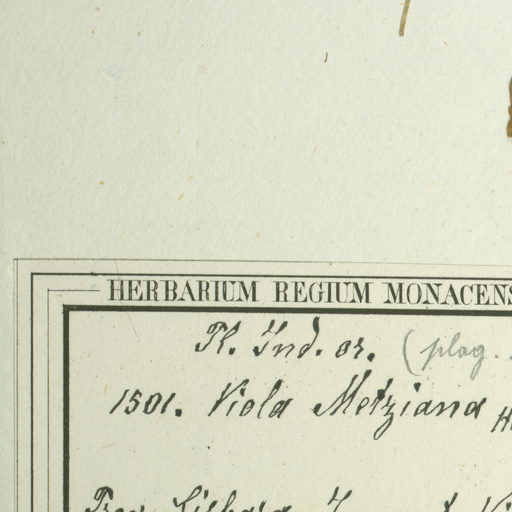 HERBARIUM REGIUM MONACENS
Pl. Ind. or. (plag.
1501. Viola Metziana